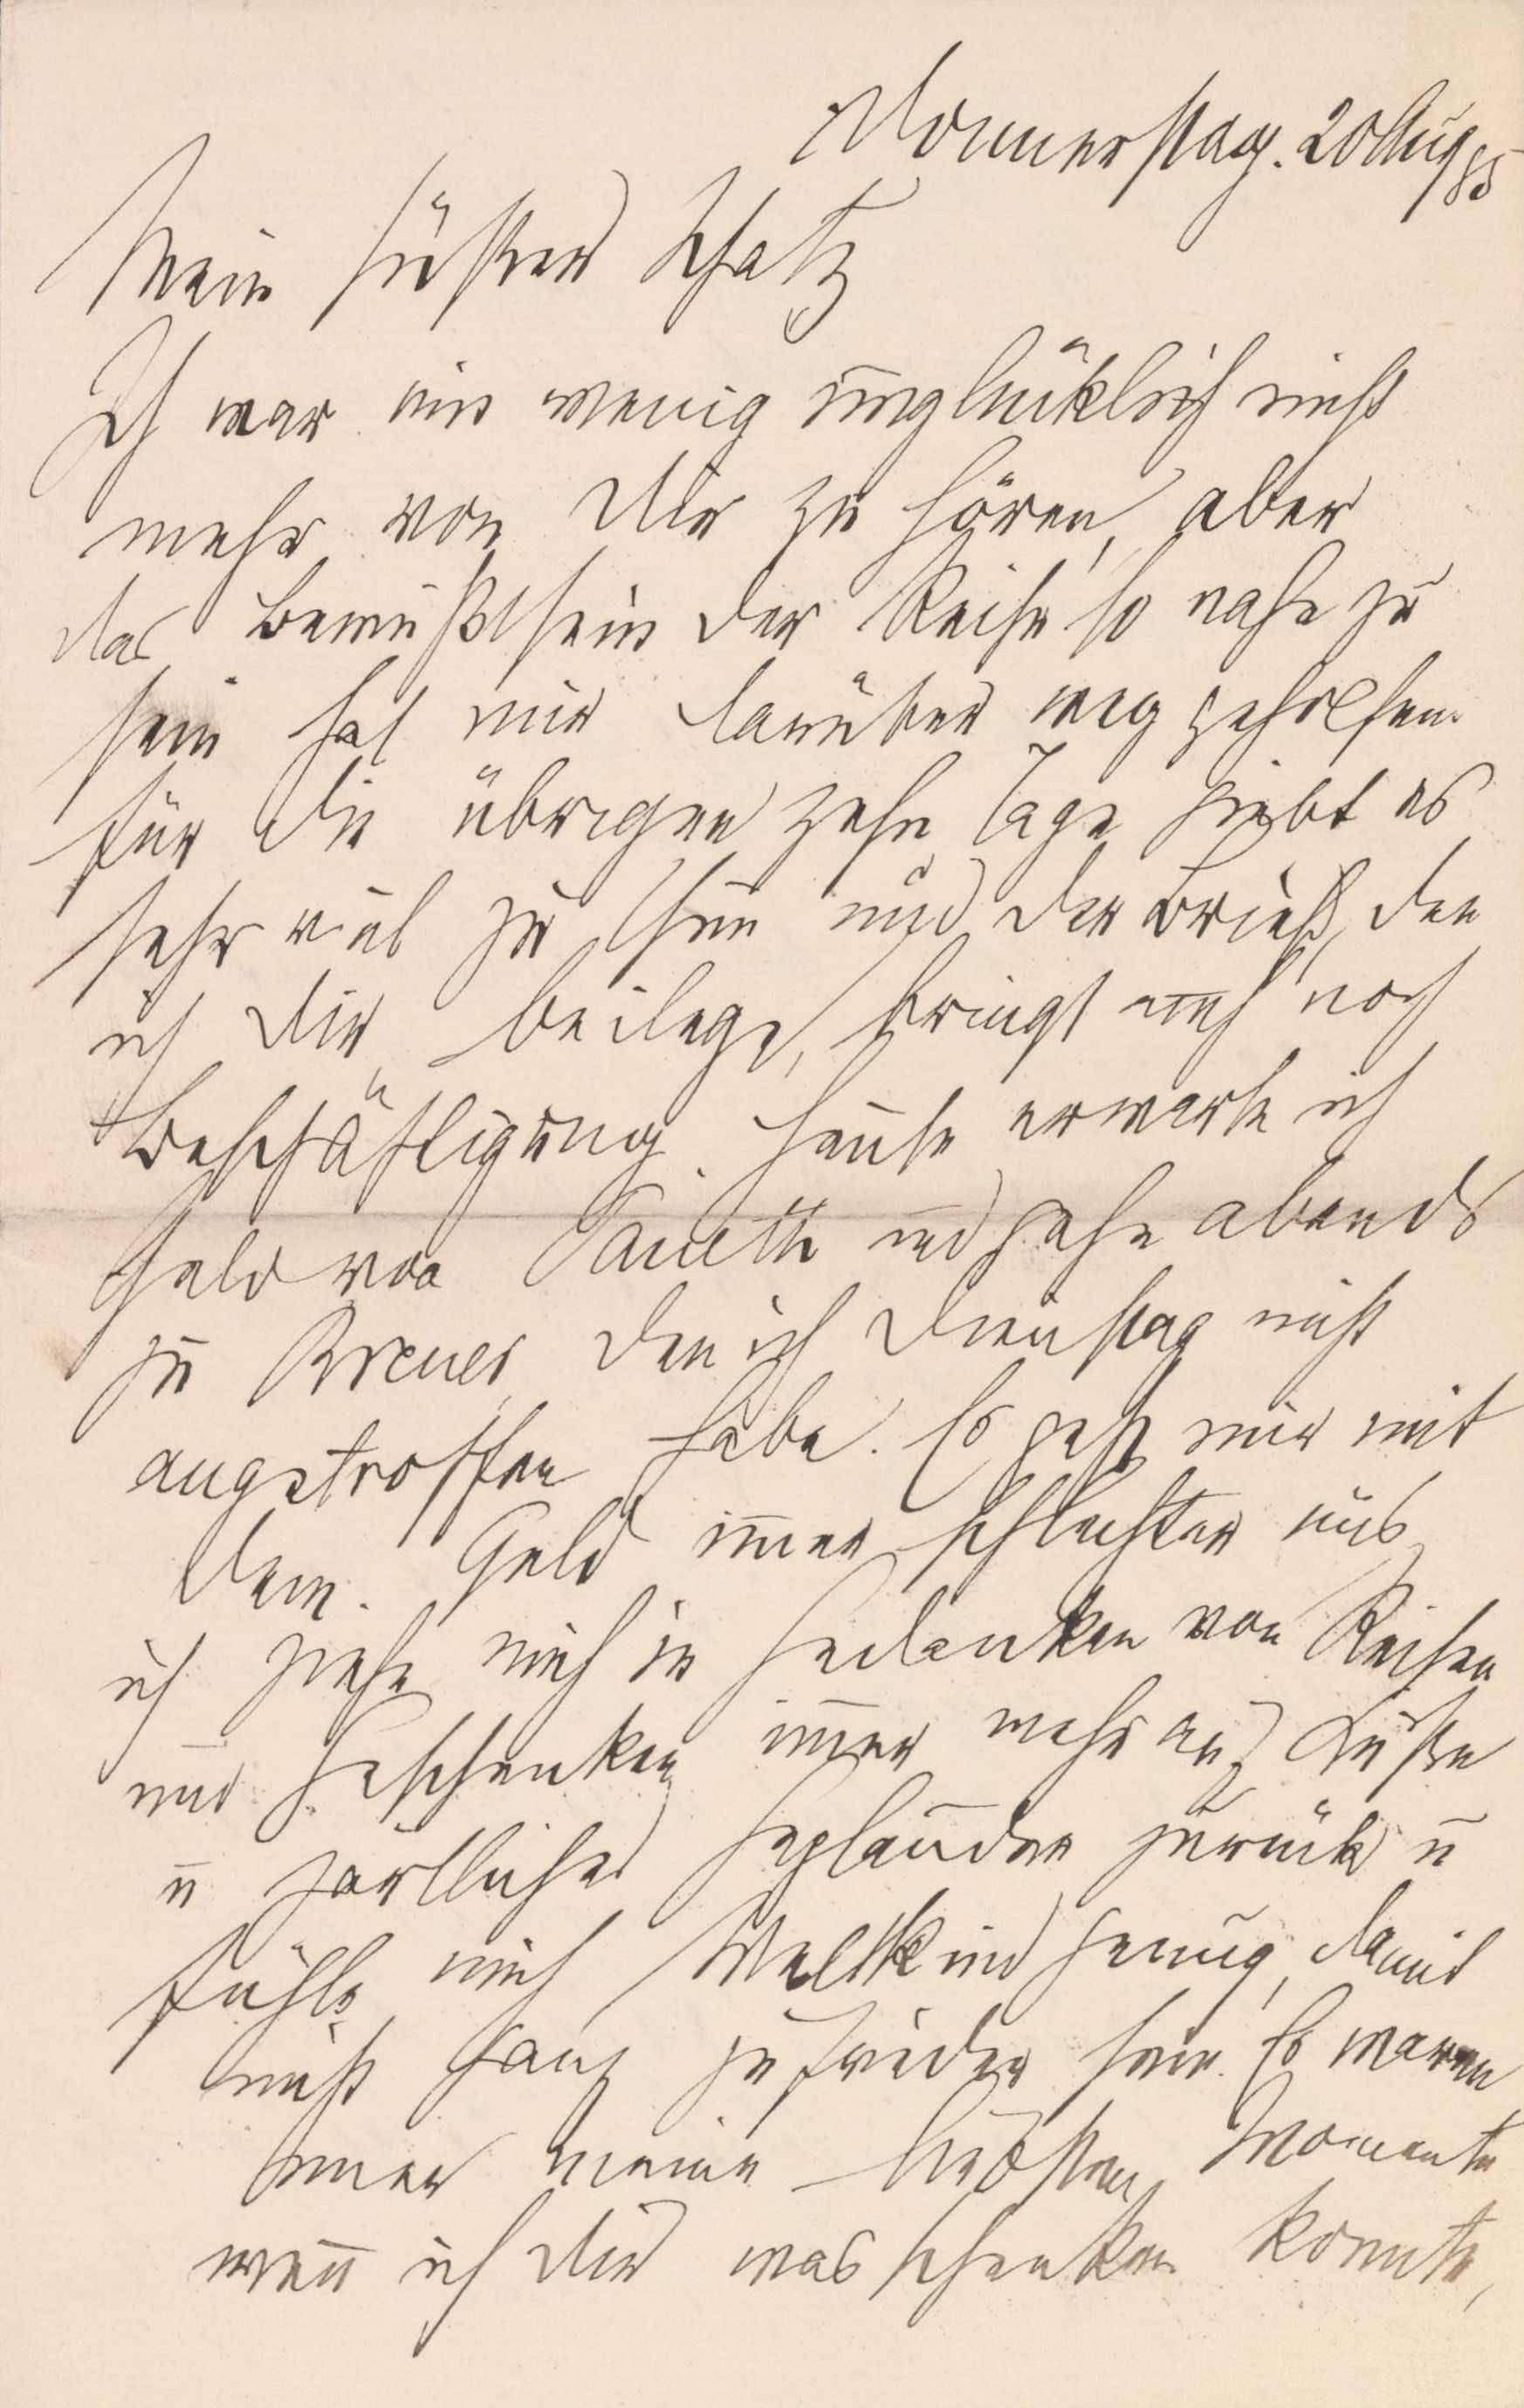 Donnerstag. 20 Aug 85
Mein süßer Schatz
Ich war ein wenig unglücklich nicht
mehr von Dir zu hören, aber
das Bewußtsein der Reise so nahe zu
sein hat mir darüber weg geholfen.
für die übrigen zehn Tage giebt es
sehr viel zu thun und der Brief, den
ich Dir beilege, bringt auch noch
Beschäftigung. Heute erwarte ich
Geld von Paneth und gehe abends
zu Breuer, den ich Dienstag nicht
angetroffen habe. Es geht mir mit
dem Geld im̅er schlechter aus,
ich ziehe mich in Gedanken von Reisen
und Geschenken im̅er mehr auf Küße
u zärtliches Geplauder zurück u
fühle mich Weltkind genug, damit
nicht ganz zufrieden sein. Es waren
im̅er meine schönsten Momente
wen̅ ich Dir was schenken konnte,